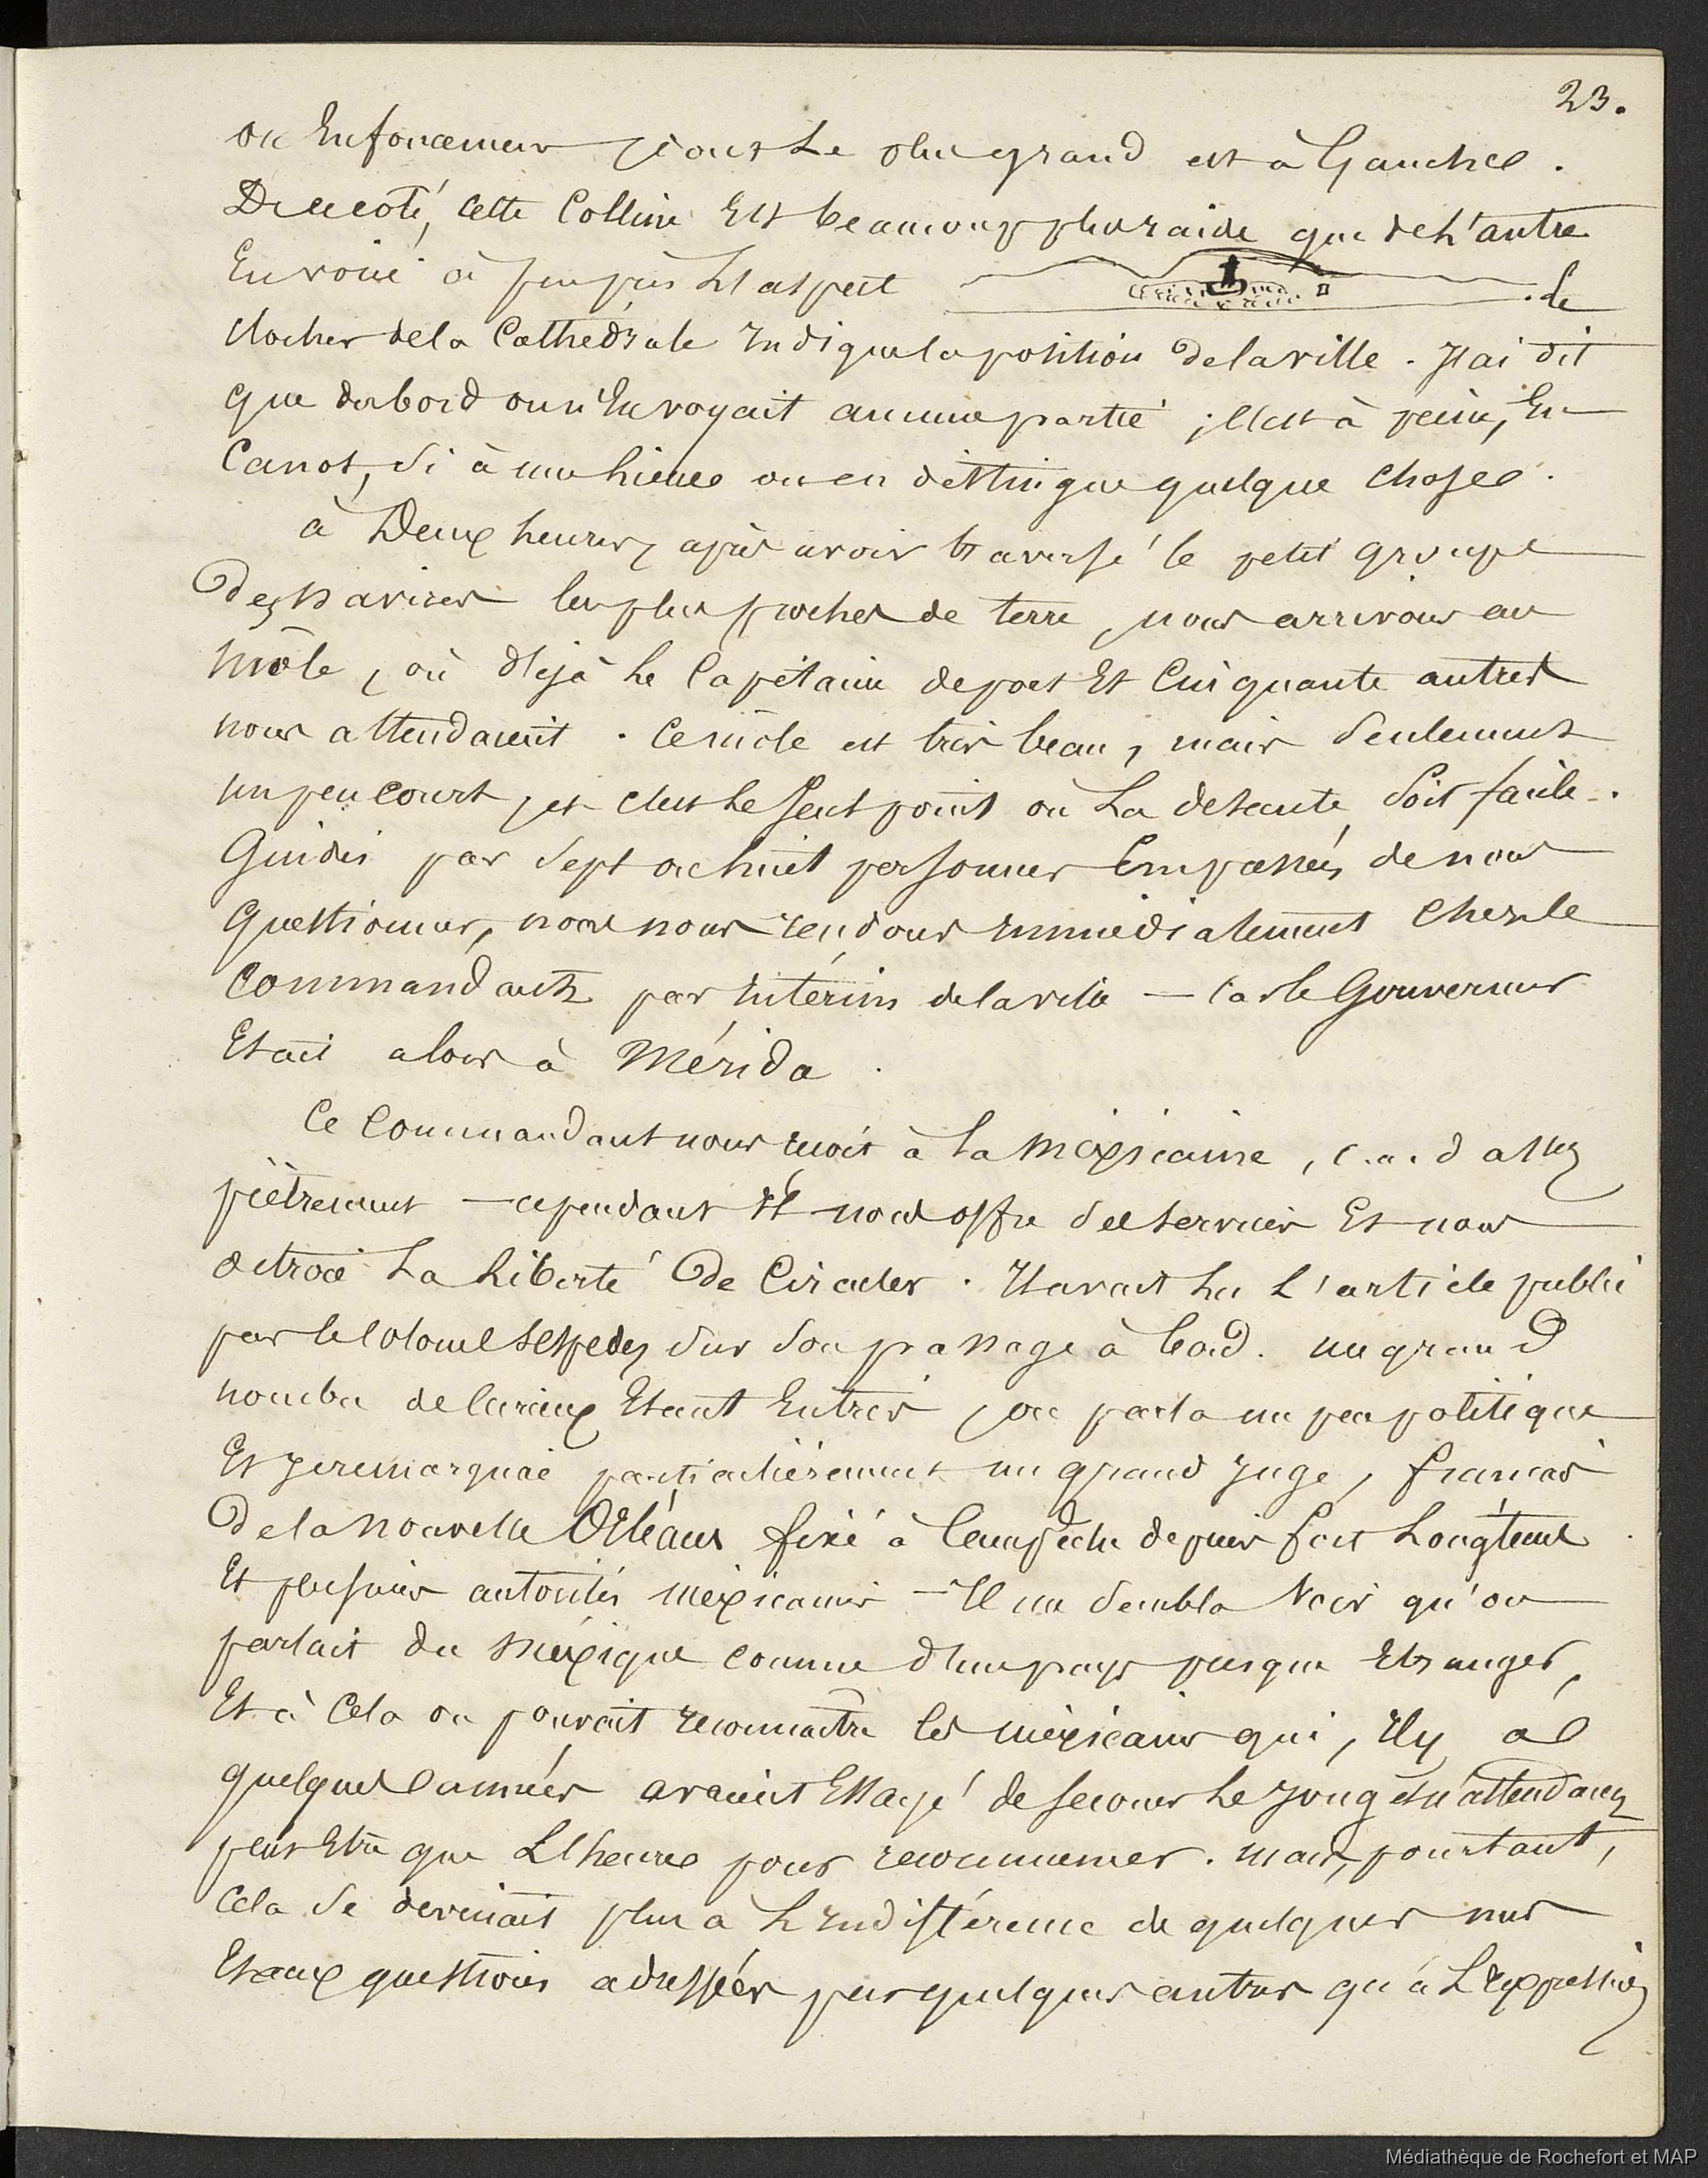 23.
ou Enfoncement dont Le plus grand est à Gauche.
De ce coté, cette Colline Est beaucoup plus raide que de L'autre
En voici à peu près L'aspect . le
clocher de la Cathédrale Indique la position de la ville. J'ai dit
que dabord on n'En voyait aucune partie ; c'est à peine, En
Canot, si à un mille on en distingue quelque chose.
à Deux heures, après avoir traversé le petit groupe
Des Navires les plus proches de terre, nous arrivons au
Môle, où déjà Le Capitaine de port Et Cinquante autres
nous attendaient. Ce môle est très beau, mais seulement
un peu court, et c'est le seul point où La descente soit facile.
Guidés par sept ou huit personnes Empressées de nous
Questionner, nous nous rendons immédiatement chez le
Commandant par intérim de la ville — car le Gouverneur
Etait alors à Mérida.
Ce Commandant nous reçoit à La Mexicaine, c.a.d assez
piètrement — cependant Il nous offre ses services Et nous
octroie La Liberté De Circuler. Il avait Lu L'article publié
par le Colonel Sespedes sur son passage à bord. un grand
nombre de Curieux Etant Entrés, on parla un peu politique
Et je remarquai particulièrement un grand Juge, français
De la Nouvelle Orléans fixé à Campêche depuis fort Longtems
Et plusieurs autorités mexicaines — Il me sembla Voir qu'on
parlait du Mexique comme d'un pays presque Etranger,
Et à Cela on pouvait reconnaitre les mexicains qui, Il y a
quelques années avaient Essayé de secouer Le Joug et n'attendaient
peut Etre que L'heure pour recommencer. mais, pourtant,
Cela se devinait plus à L'Indifférence de quelques uns
Et aux questions adressées par quelques autres qu'à L'Expression
Médiathèque de Rochefort et MAP